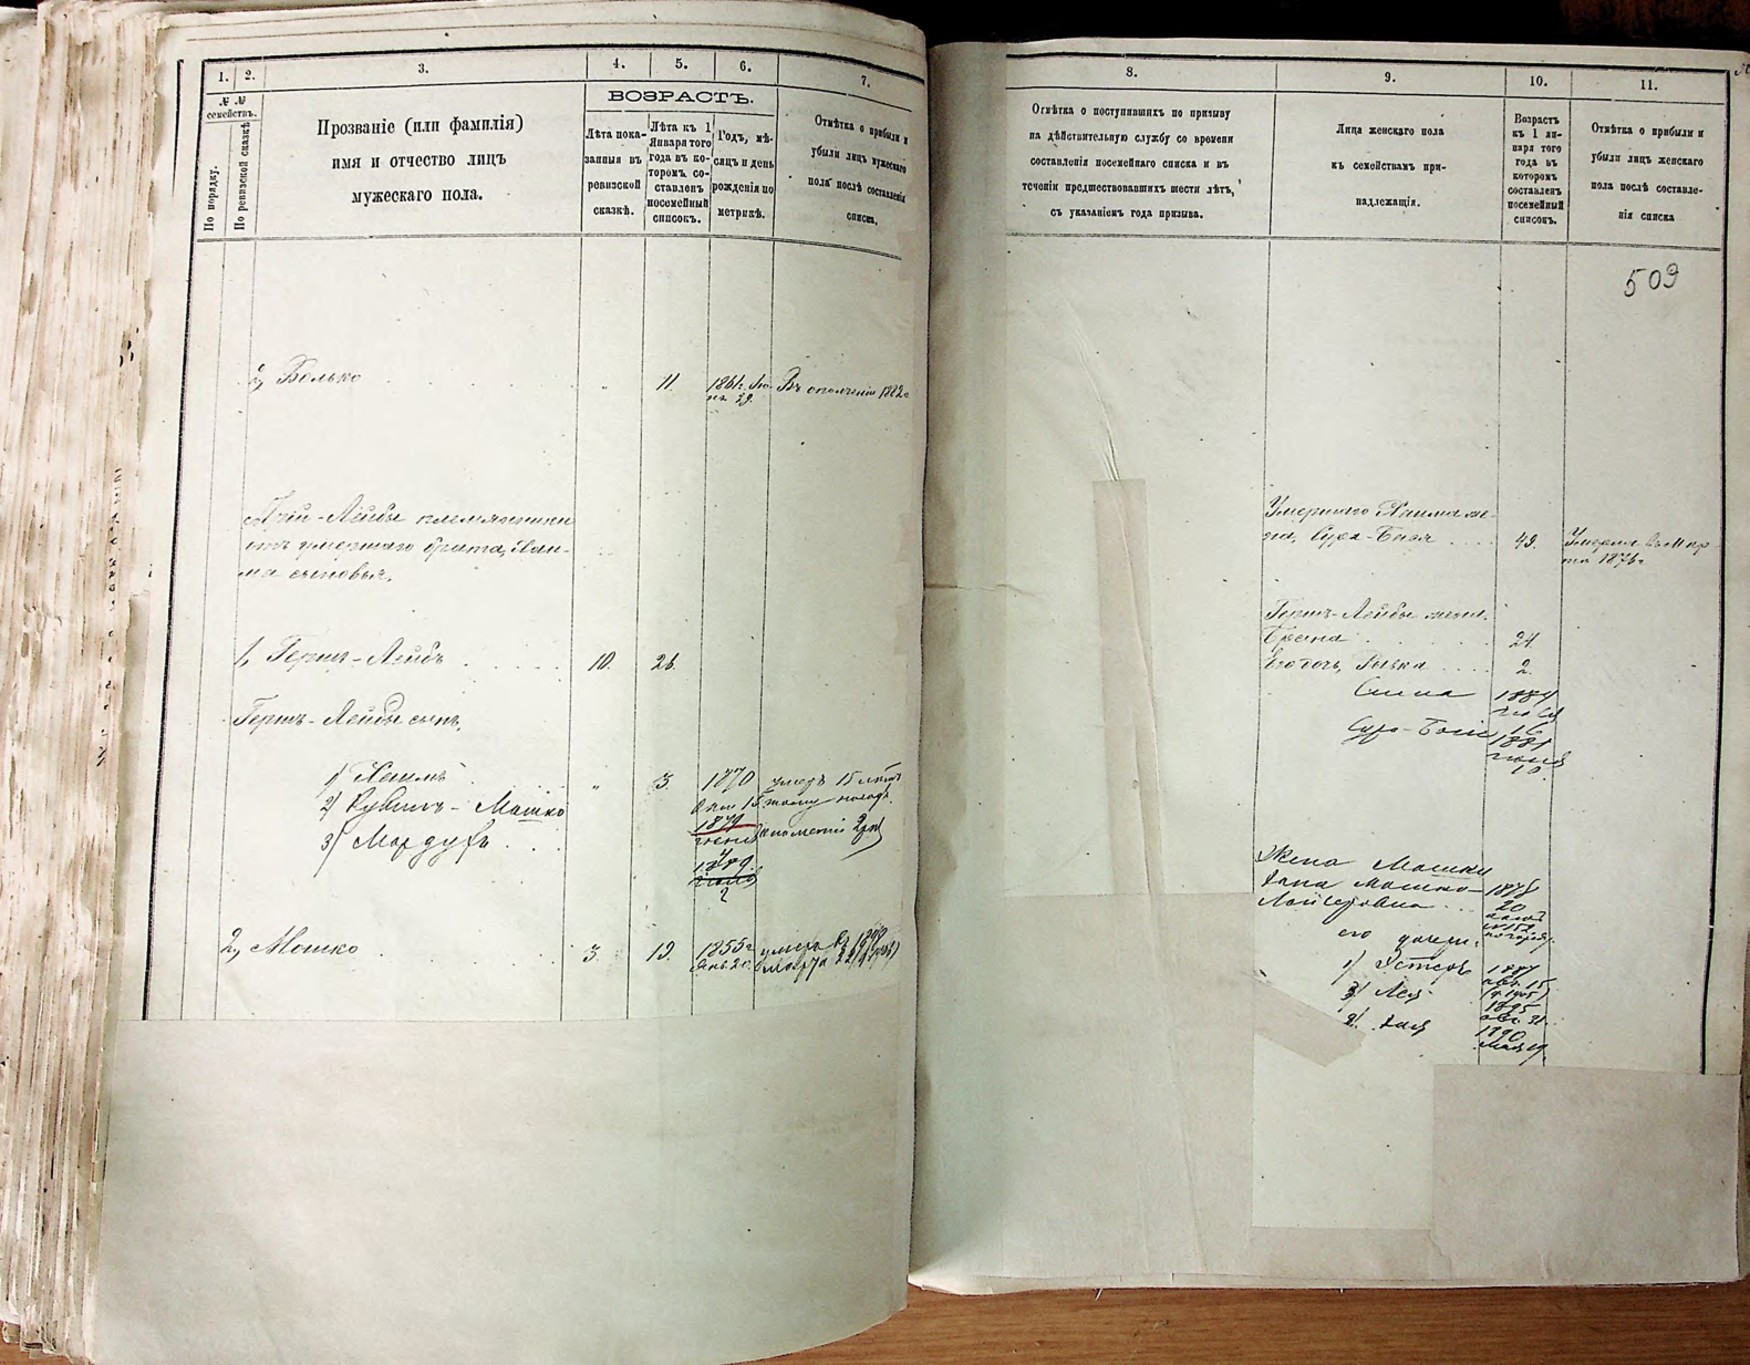 1. 2. 3. 4. 5. 6. 7.
№ №
семействъ.
По порядку.
По ревизской сказкѣ
Прозваніе (или фамилія)
имя и отчество лицъ
мужескаго пола.
ВОЗРАСТЪ.
Лѣта пока-
занныя въ
ревизской
сказкѣ.
Лѣта къ 1
Января того
года въ ко-
торомъ со-
ставленъ
посемейный
списокъ.
Годъ, мѣ-
сяцъ и день
рожденія по
метрикѣ.
Отмѣтка о прибыли и
убыли лицъ мужескаго
пола послѣ составленія
списка.
2, Волько 11. Въ ополченіи 1882г
Лейбы племянники
отъ умершаго брата, Хаи-
ма сыновья.
1, Гершъ-Лейбъ 10. 26.
Гершъ-Лейбы сынъ,
1) Хаимъ " 3. 1870 умеръ 15
2) Рувинъ-Мошко
1879
3) Мордухъ
2, Мошко 3. 19. 1855г
Янв. 20. марта 22
8. 9. 10. 11.
Отмѣтка о поступившихъ по призыву
на дѣйствительную службу со времени
составленія посемейнаго списка и въ
теченіи предшествовавшихъ шести лѣтъ,
съ указаніемъ года призыва.
Лица женскаго пола
къ семействамъ при-
надлежащія.
Возрастъ
къ 1 ян-
варя того
года въ
которомъ
составленъ
посемейный
списокъ.
Отмѣтка о прибыли и
убыли лицъ женскаго
пола послѣ составле-
нія списка
509
Умершаго Хаима же-
на, Сура-Бася 49. Умерла въ Мар
та 1876г
Гершъ-Лейбы жена
Брейна 24.
Его дочь, Рывка 2.
1884
Сура-Бася
1881
10.
Жена Мошки
Хана Мошко-
1878
20
его дочери:
1) Эстеръ 1887
авг. 15
3) Лея 1895
авг. 31.
2) Хая 1890
Мая 19.